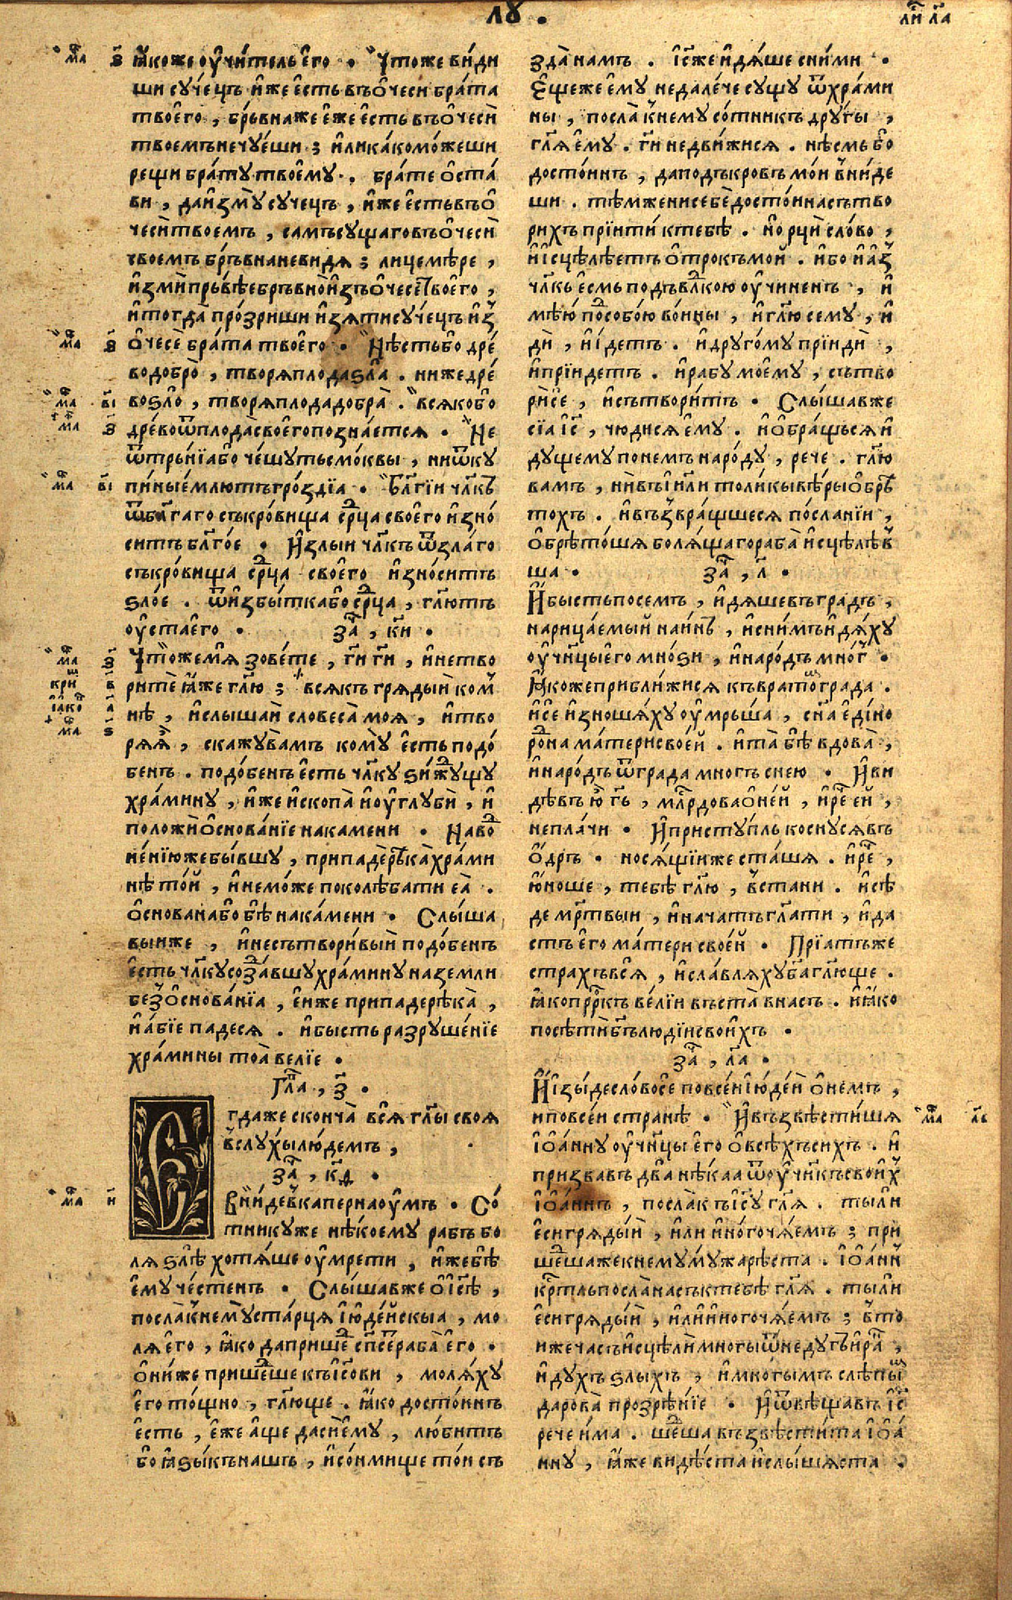 лꙋ .
лі҃и л҃а
ꙗ҆коже ᲂу҆чи́тель е҆го̀ . Что́же ви́ди
ши сꙋче́цъ и҆́же е҆сть въ ѻ҆́чеси бра́та
твоего̀ , бръвна́же е҆́же е҆сть въ ѻ҆́чесѝ
твое́мъ не чꙋ́еши ; и҆лѝ ка́ко мо́жеши
рещѝ бра́тꙋ твоемꙋ̀ . бра́те ѡ҆ста́
ви , да и҆змꙋ̀ сꙋче́цъ , и҆́же е҆сть въ ѻ҆
чесѝ твое́мъ , са́мъ сꙋ́щаго въ ѻ҆чесѝ
твое́мъ бръвна̀ не ви́дѧ ; лицемѣ́ре ,
и҆змѝ пръвѣ́е бръвно̀ и҆зъ ѻ҆чесѐ твоего̀ ,
и҆ тогда̀ про́зриши и҆зѧ́ти сꙋче́цъ и҆з
ѻ҆чесѐ бра́та твоего̀ . Нѣ́сть бо дре́
во добро̀ , творѧ̀ плода̀ ѕла̀ . ниже дре́
во ѕло̀ , творѧ̀ плода̀ добра̀ . всѧ́ко бо
дре́во ѿ плода̀ своего̀ познае́тсѧ . Не
ѿ тръ́нїа бо че́шꙋтъ смо́квы , ни ѿ кꙋ
пины̀ е҆́млютъ гро́здїа . Бл҃гі́и чл҃къ
ѿ бл҃га́го съкро́вища ср҃ца своего̀ и҆зно́
ситъ бл҃го́е . И҆ ѕлы́и чл҃къ ѿ ѕла́го
съкро́вища ср҃ца своего̀ и҆зно́ситъ
ѕло́е . ѿ и҆збы́тка бо ср҃ца , гл҃ютъ
ᲂу҆ста̀ е҆го̀ . за҃ , к҃и .
Что́ же мѧ̀ зове́те , гі҃и гі҃и , и҆ не тво
ритѐ ꙗ҆́же гл҃ю ; всѧ́къ грѧды́й ко м
нѣ̀ , и҆ слы́шай словеса̀ моѧ̀ , и҆ тво
рѧ̀ ѧ҆̀ , скажꙋ̀ ва́мъ комꙋ̀ е҆́сть подо́
бенъ . подо́бенъ е҆́сть чл҃кꙋ ѕи́ждꙋщꙋ
хра́минꙋ , и҆́же и҆скопа̀ и҆ ᲂу҆глꙋбѝ , и҆
положѝ ѡ҆снова́нїе на ка́мени . Наво
не́нїю же бы́вшꙋ , припадѐ рѣка̀ хра́ми
нѣ то́й , и҆ не мо́же поколѣба́ти еѧ̀ .
ѡ҆снована́ бо бѣ̀ на ка́мени . Слы́ша
выи же , и҆ не сътвори́вый подо́бенъ
е҆́сть чл҃кꙋ созда́вшꙋ хра́минꙋ на землѝ
без ѡ҆снова́нїа , е҆́йже припадѐ рѣка̀ ,
и҆ а҆́бїе паде́сѧ . и҆ бы́сть разрꙋше́нїе
хра́мины тоѧ̀ ве́лїе .
Гл҃а , з҃ .
Е гда́же сконча̀ всѧ̀ гл҃ы своѧ̀
в слꙋ́хы лю́демъ ,
за҃ , к҃ѳ .
вни́де в каперна ᲂу҆мъ . Со́
тникꙋ же нѣ́коемꙋ ра́бъ бо
лѧ̀ ѕлѣ̀ хотѧ́ше ᲂу҆мре́ти , и҆́же бѣ̀
е҆мꙋ̀ че́стенъ . Слы́шав же ѡ҆ і҆с҃ѣ ,
посла̀ к немꙋ̀ ста́рца і҆ꙋде́йскыа , мо
лѧ̀ е҆го̀ , ꙗ҆́ко да прише́д сп҃се́ раба̀ е҆го̀ .
ѻ҆ни́же прише́дше къ і҆с҃ови , молѧ́хꙋ
е҆го̀ то́щно , гл҃юще . ꙗ҆́ко досто́инъ
е҆́сть , е҆́же а҆́ще да́си е҆мꙋ̀ , лю́битъ
бо ꙗ҆зы́къ на́шъ , и҆ со́нмище то́й съ
зда̀ на́мъ . і҆с҃ же и҆дѧ́ше с ни́ми .
Е҆ще́же е҆мꙋ̀ не дале́че сꙋ́щꙋ ѿ хра́ми
ны , посла̀ к немꙋ̀ со́тникъ дрꙋ́гы ,
гл҃ѧ е҆мꙋ̀ . гі҃и не дви́жисѧ . нѣ́смь бо
досто́инъ , да под кро́въ мо́й вни́де
ши . тѣ́мже ни себѐ досто́йна сътво
ри́хъ прїитѝ к тебѣ̀ . но̀ рцѝ сло́во ,
и҆ и҆сцѣлѣ́етъ ѻ҆трокъ мо́й . и҆́бо и҆ а҆́з
чл҃къ е҆́смь под вл҃кою ᲂу҆чине́нъ , и҆
мѣ́ю по собо́ю во́ины , и҆ гл҃ю семꙋ̀ , и҆
дѝ , и҆ и҆́детъ . и҆ дрꙋго́мꙋ прїидѝ ,
и҆ прїи́детъ . и҆ рабꙋ̀ моемꙋ̀ , сътво
рѝ сѐ , и҆ сътвори́тъ . Слы́шав же
сїа̀ і҆с҃ , чюди́сѧ е҆мꙋ̀ . и҆ ѡ҆бра́щьсѧ и҆
дꙋ́щемꙋ по не́мъ наро́дꙋ , речѐ . гл҃ю
ва́мъ , ни въ і҆и҃ли толи́кы вѣ́ры ѡ҆брѣ
то́хъ . и҆ възвра́щшесѧ по́сланїи ,
ѡ҆брѣто́шѧ болѧ́щаго раба̀ и҆сцѣлѣ́в
ша . за҃ , л҃ .
И҆ бы́сть по се́мъ , и҆дѧ́ше въ гра́дъ ,
нарица́емый наи́нъ , и҆ с ни́мъ и҆дѧ́хꙋ
ᲂу҆чн҃цы е҆го̀ мно́ѕи , и҆ наро́дъ мно́г .
Ꙗ҆коже прибли́жисѧ къ врато́м гра́да .
и҆ сѐ и҆зношѧ́хꙋ ᲂу҆мръ́ша , сн҃а е҆ди́но
ро́дна ма́тери свое́й . и҆ та̀ бѣ̀ вдова̀ ,
и҆ наро́дъ ѿ гра́да мно́гъ с не́ю . И҆ ви
дѣвъ ю҆̀ гь҃ , мл҃рдова ѡ҆ не́й , и҆ реч҃ е҆́й ,
не пла́чи . И҆ пристꙋ́пль коснꙋ́сѧ въ
ѻ҆́дръ . носѧ́щїи же ста́шѧ . и҆ реч҃ ,
ю҆́ноше , тебѣ̀ гл҃ю , въста́ни . и҆ сѣ́
де мр҃твыи , и҆ нача́тъ гл҃ати , и҆ да
стъ е҆го̀ ма́тери свое́й . Прїа́тъ же
стра́хъ всѧ̀ , и҆ сла́влѧхꙋ бг҃а гл҃юще .
ꙗ҆́ко прр҃къ ве́лїи въста̀ в на́съ . и҆ ꙗ҆́ко
посѣтѝ бг҃ъ лю́дїи свои́хъ .
за҃ , л҃а .
И҆ і҆зы́де сло́во сѐ по все́и і҆ꙋде́й ѡ҆ не́мъ ,
и҆ по все́и странѣ̀ . И҆ възвѣсти́шѧ
і҆ѡ҆а́ннꙋ ᲂу҆чн҃цы е҆го̀ ѡ҆ всѣ́хъ си́хъ . и҆
призва́въ два̀ нѣ́каа ѿ ᲂу҆чн҃къ свои́х
і҆ѡ҆а́ннъ , посла̀ къ і҆с҃ꙋ гл҃ѧ . ты́ ли
е҆сѝ грѧды́й , и҆лѝ и҆но́го ча́емъ ; при
ше́дша же к немꙋ̀ мꙋ́жа рѣ́ста . і҆ѡ҆а́нн
кр҃тль посла̀ на́съ к тебѣ̀ гл҃ѧ . ты́ ли
е҆сѝ грѧды́й , и҆лѝ и҆но́го ча́емъ ; в то
и҆же ча́съ и҆сцѣлѝ мно́гы ѿ недꙋ́гъ и҆ ра́н ,
и҆ дꙋ́хъ ѕлы́хъ , и҆ мно́гымъ слѣпы́м
дарова̀ прозрѣ́нїе . И҆ ѿвѣща́въ і҆с҃
речѐ и҆́ма . ше́дша възвѣсти́та і҆ѡ҆а́
ннꙋ , ꙗ҆́же ви́дѣста и҆ слы́шѧста .